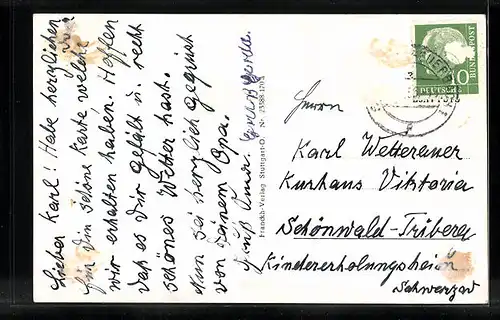 Lieber Karl! Habe herzlichen
für Die schöne Karte welche
wir erhalten haben. Hoffen
daß es Dir gefällt u. recht
schönes Wetter hast.
Nun sei herzlich gegrüsst
von Deinem Opa.
Franckh-Verlag Stuttgart-O
Herrn
Karl Wetterauer
Kurhaus Viktoria
Schönwald-Triberg
Kindererholungsheim
Schwarzwd
10
DEUTSCHE
BUNDESPOST